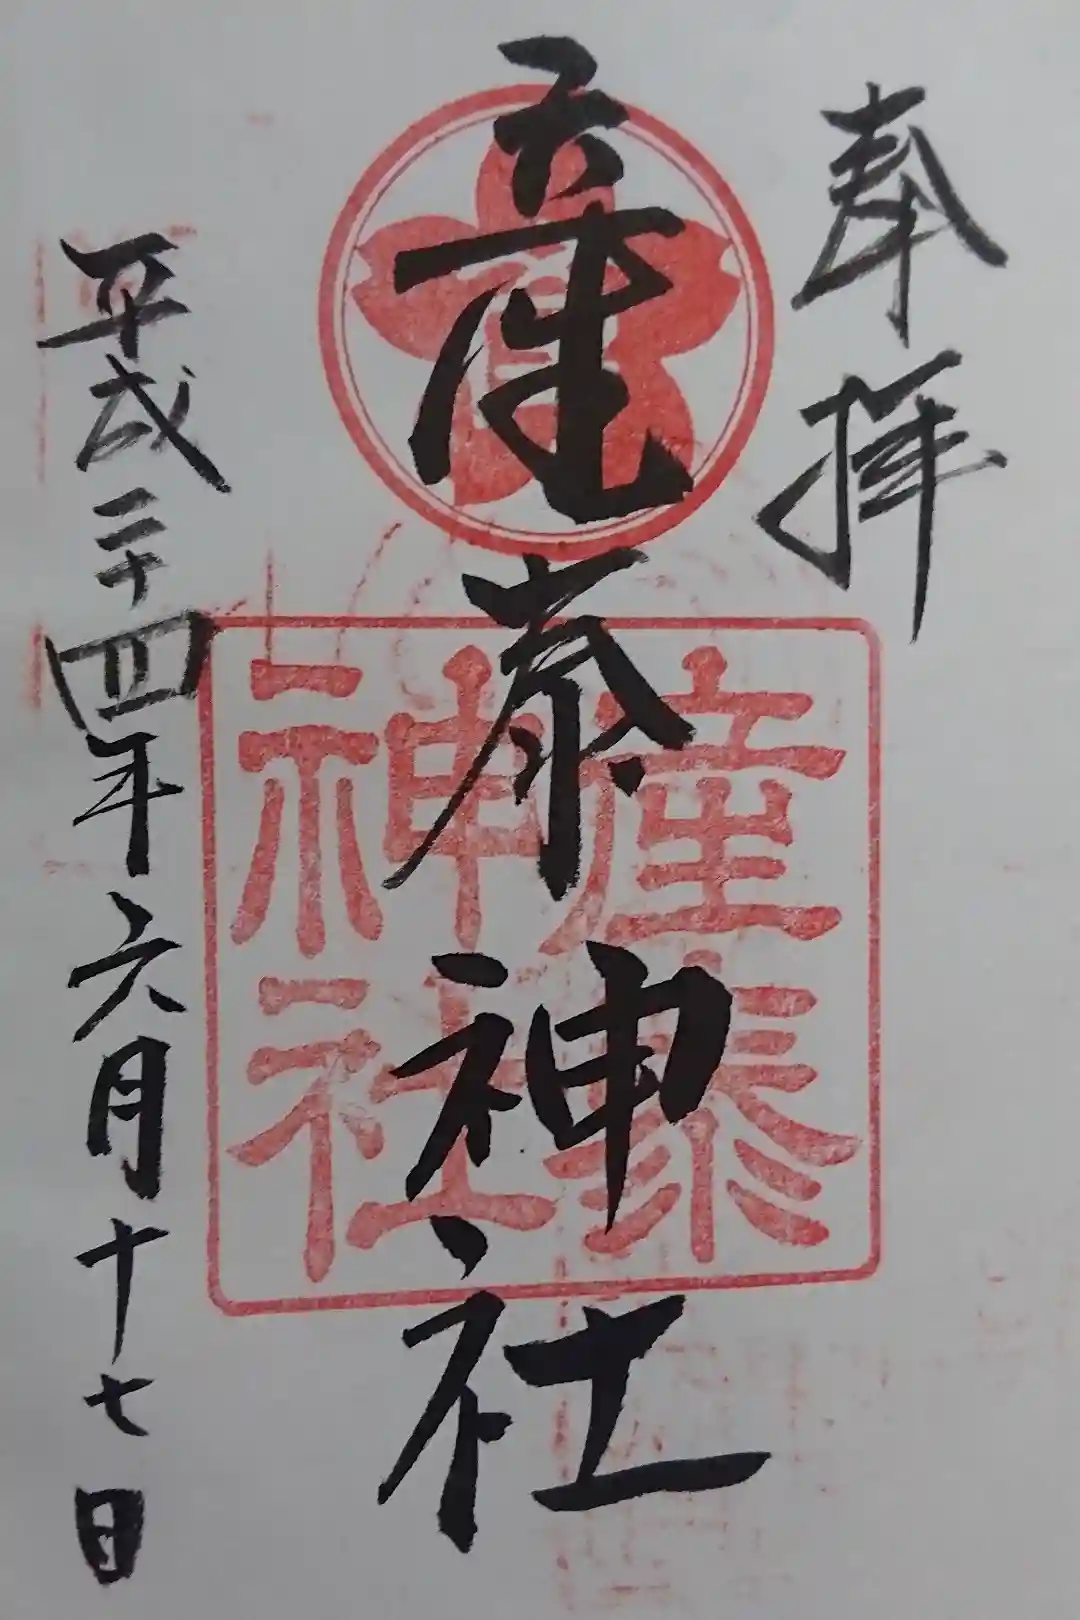 奉拝
産泰神社
産泰
神社
平成二十四年六月十七日